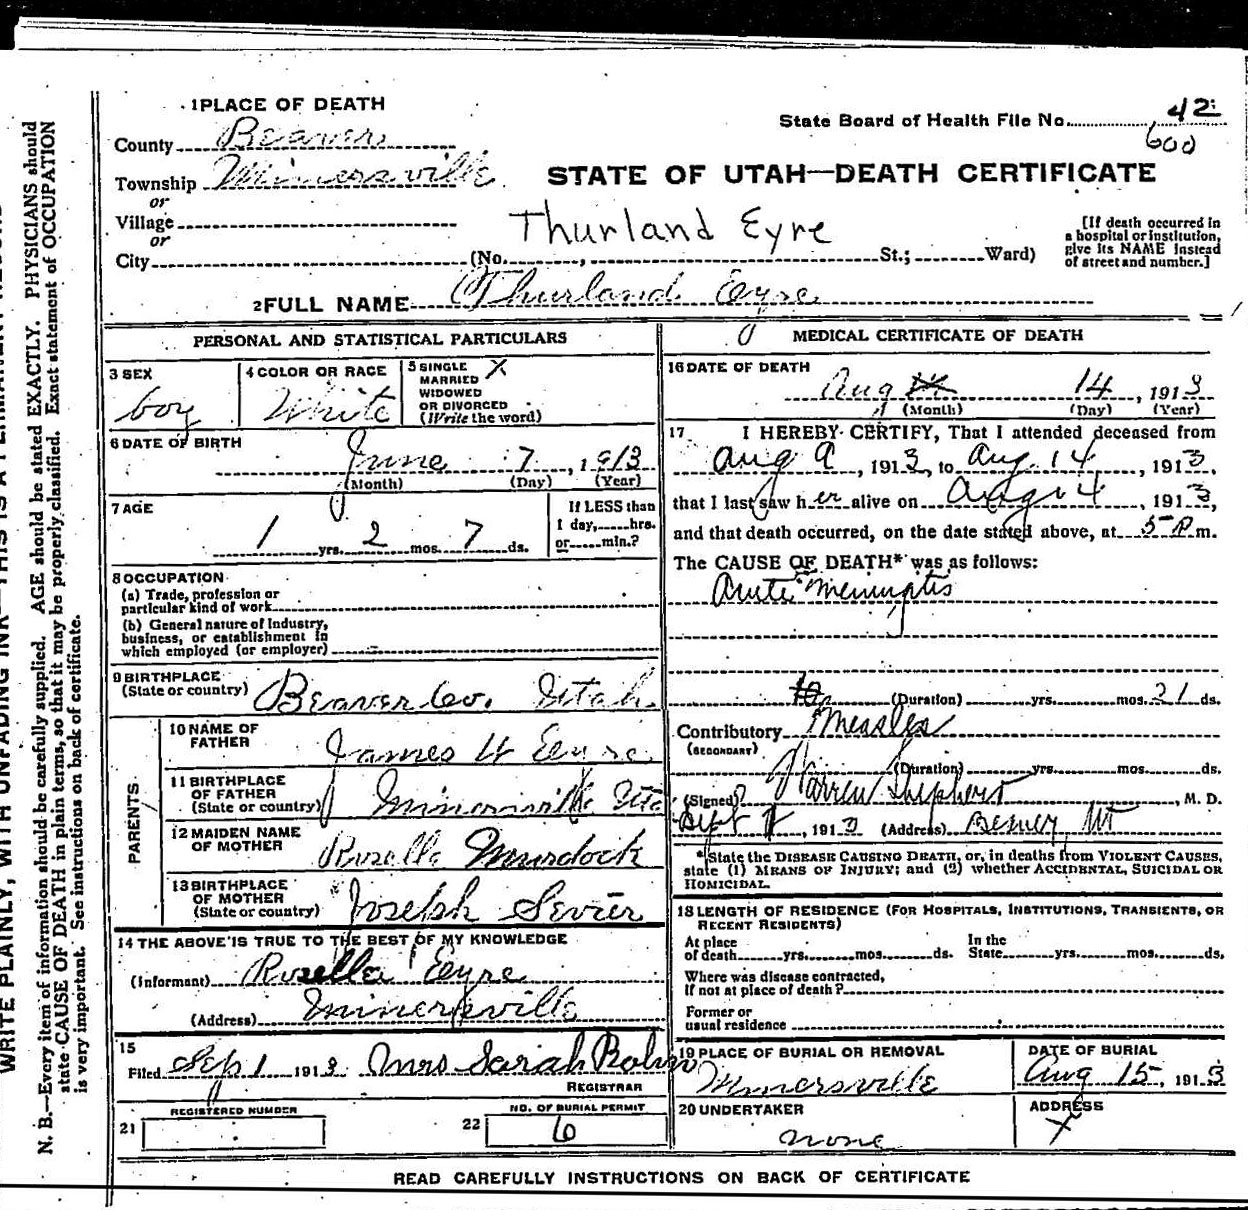 1 PLACE OF DEATH
County Beaver
Township Minersville
or
Village
or
City (No. , St.; Ward)
State Board of Health File No. 42
600
STATE OF UTAH—DEATH CERTIFICATE
Thurland Eyre
[If death occurred in
a hospital or institution,
give its NAME instead
of street and number.]
2 FULL NAME Thurland Eyre
PERSONAL AND STATISTICAL PARTICULARS
3 SEX
boy
4 COLOR OR RACE
White
5 SINGLE X
MARRIED
WIDOWED
OR DIVORCED
(Write the word)
6 DATE OF BIRTH
June 7, 1913
(Month) (Day) (Year)
7 AGE
1 yrs. 2 mos. 7 ds.
If LESS than
1 day, hrs.
or min.?
8 OCCUPATION
(a) Trade, profession or
particular kind of work
(b) General nature of Industry,
business, or establishment in
which employed (or employer)
9 BIRTHPLACE
(State or country) Beaver Co. Utah
PARENTS
10 NAME OF
FATHER James W Eyre
11 BIRTHPLACE
OF FATHER
(State or country) Minersville Uta
12 MAIDEN NAME
OF MOTHER Rosella Murdock
13 BIRTHPLACE
OF MOTHER
(State or country) Joseph Sevier
14 THE ABOVE IS TRUE TO THE BEST OF MY KNOWLEDGE
(Informant) Rosella Eyre
(Address) Minersville
15
Filed Sep 1 1913 Mrs Sarah
REGISTRAR
REGISTERED NUMBER
21
NO. OF BURIAL PERMIT
22 6
MEDICAL CERTIFICATE OF DEATH
16 DATE OF DEATH
Aug 14, 1913
(Month) (Day) (Year)
17 I HEREBY CERTIFY, That I attended deceased from
Aug 9, 1913, to Aug. 14, 1913,
that I last saw h er alive on Aug 14, 1913,
and that death occurred, on the date stated above, at 5 P m.
The CAUSE OF DEATH* was as follows:
Acute Meningitis
(Duration) yrs. mos. 21 ds.
Contributory Measles
(SECONDARY)
(Duration) yrs. mos. ds.
(Signed) Warren Shepherd, M. D.
Sept 1, 1913 (Address) Beaver, Ut
*State the DISEASE CAUSING DEATH, or, in deaths from VIOLENT CAUSES,
state (1) MEANS OF INJURY; and (2) whether ACCIDENTAL, SUICIDAL OR
HOMICIDAL.
18 LENGTH OF RESIDENCE (FOR HOSPITALS, INSTITUTIONS, TRANSIENTS, OR
RECENT RESIDENTS)
At place
of death yrs. mos. ds.
In the
State yrs. mos. ds.
Where was disease contracted,
If not at place of death?
Former or
usual residence
19 PLACE OF BURIAL OR REMOVAL
Minersville
DATE OF BURIAL
Aug 15, 1913
20 UNDERTAKER
none
ADDRESS
X
READ CAREFULLY INSTRUCTIONS ON BACK OF CERTIFICATE
WRITE PLAINLY, WITH UNFADING INK—THIS IS A PERMANENT RECORD
N. B.—Every item of information should be carefully supplied. AGE should be stated EXACTLY. PHYSICIANS should
state CAUSE OF DEATH in plain terms, so that it may be properly classified. Exact statement of OCCUPATION
is very important. See instructions on back of certificate.